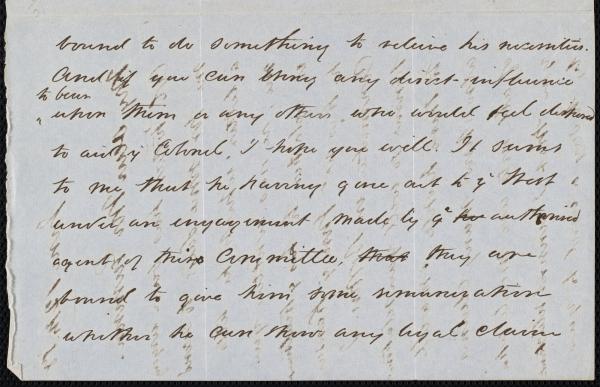 bound to do something to relieve his necessities.
And if you can bring any direct influence
to bear
upon them or any others who would feel disposed
to aid yᵉ Colonel, I hope you will. It seems
to me that he having gone out to yᵉ West
under an engagement made by yᵉ authorised
agent of this Committee, that they are
bound to give him some remuneration
whether he can show any legal claim